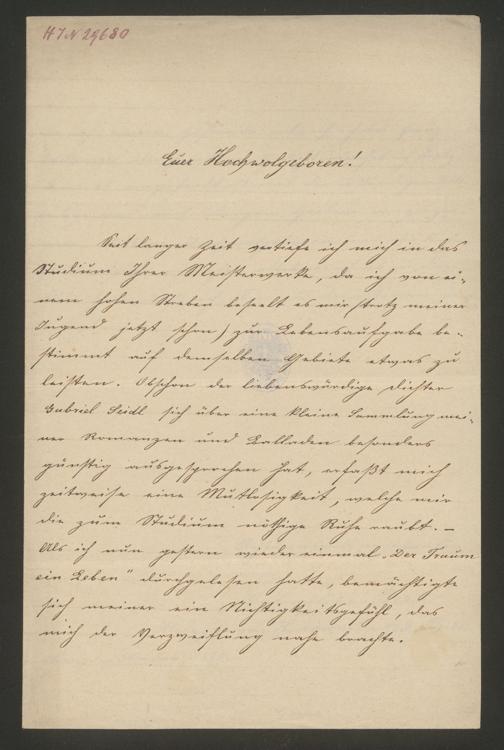 HIN 29680
Euer Hochwolgeboren!
Seit langer Zeit vertiefe ich mich in das
Studium Ihrer Meisterwerke, da ich von ei-
nem hohen Streben beseelt es mir (trotz meiner
Jugend jetzt schon) zur Lebensaufgabe be-
stimmt auf demselben Gebiete etwas zu
leisten. Obschon der liebenswürdige Dichter
Gabriel Seidl sich über eine kleine Sammlung mei-
ner Romanzen und Balladen besonders
günstig ausgesprochen hat, erfaßt mich
zeitweise eine Mutlosigkeit, welche mir
die zum Studium nöthige Ruhe raubt. –
Als ich nun gestern wieder einmal „Der Traum
ein Leben" durchgelesen hatte, bemächtigte
sich meiner ein Nichtigkeitsgefühl, das
mich der Verzweiflung nahe brachte.